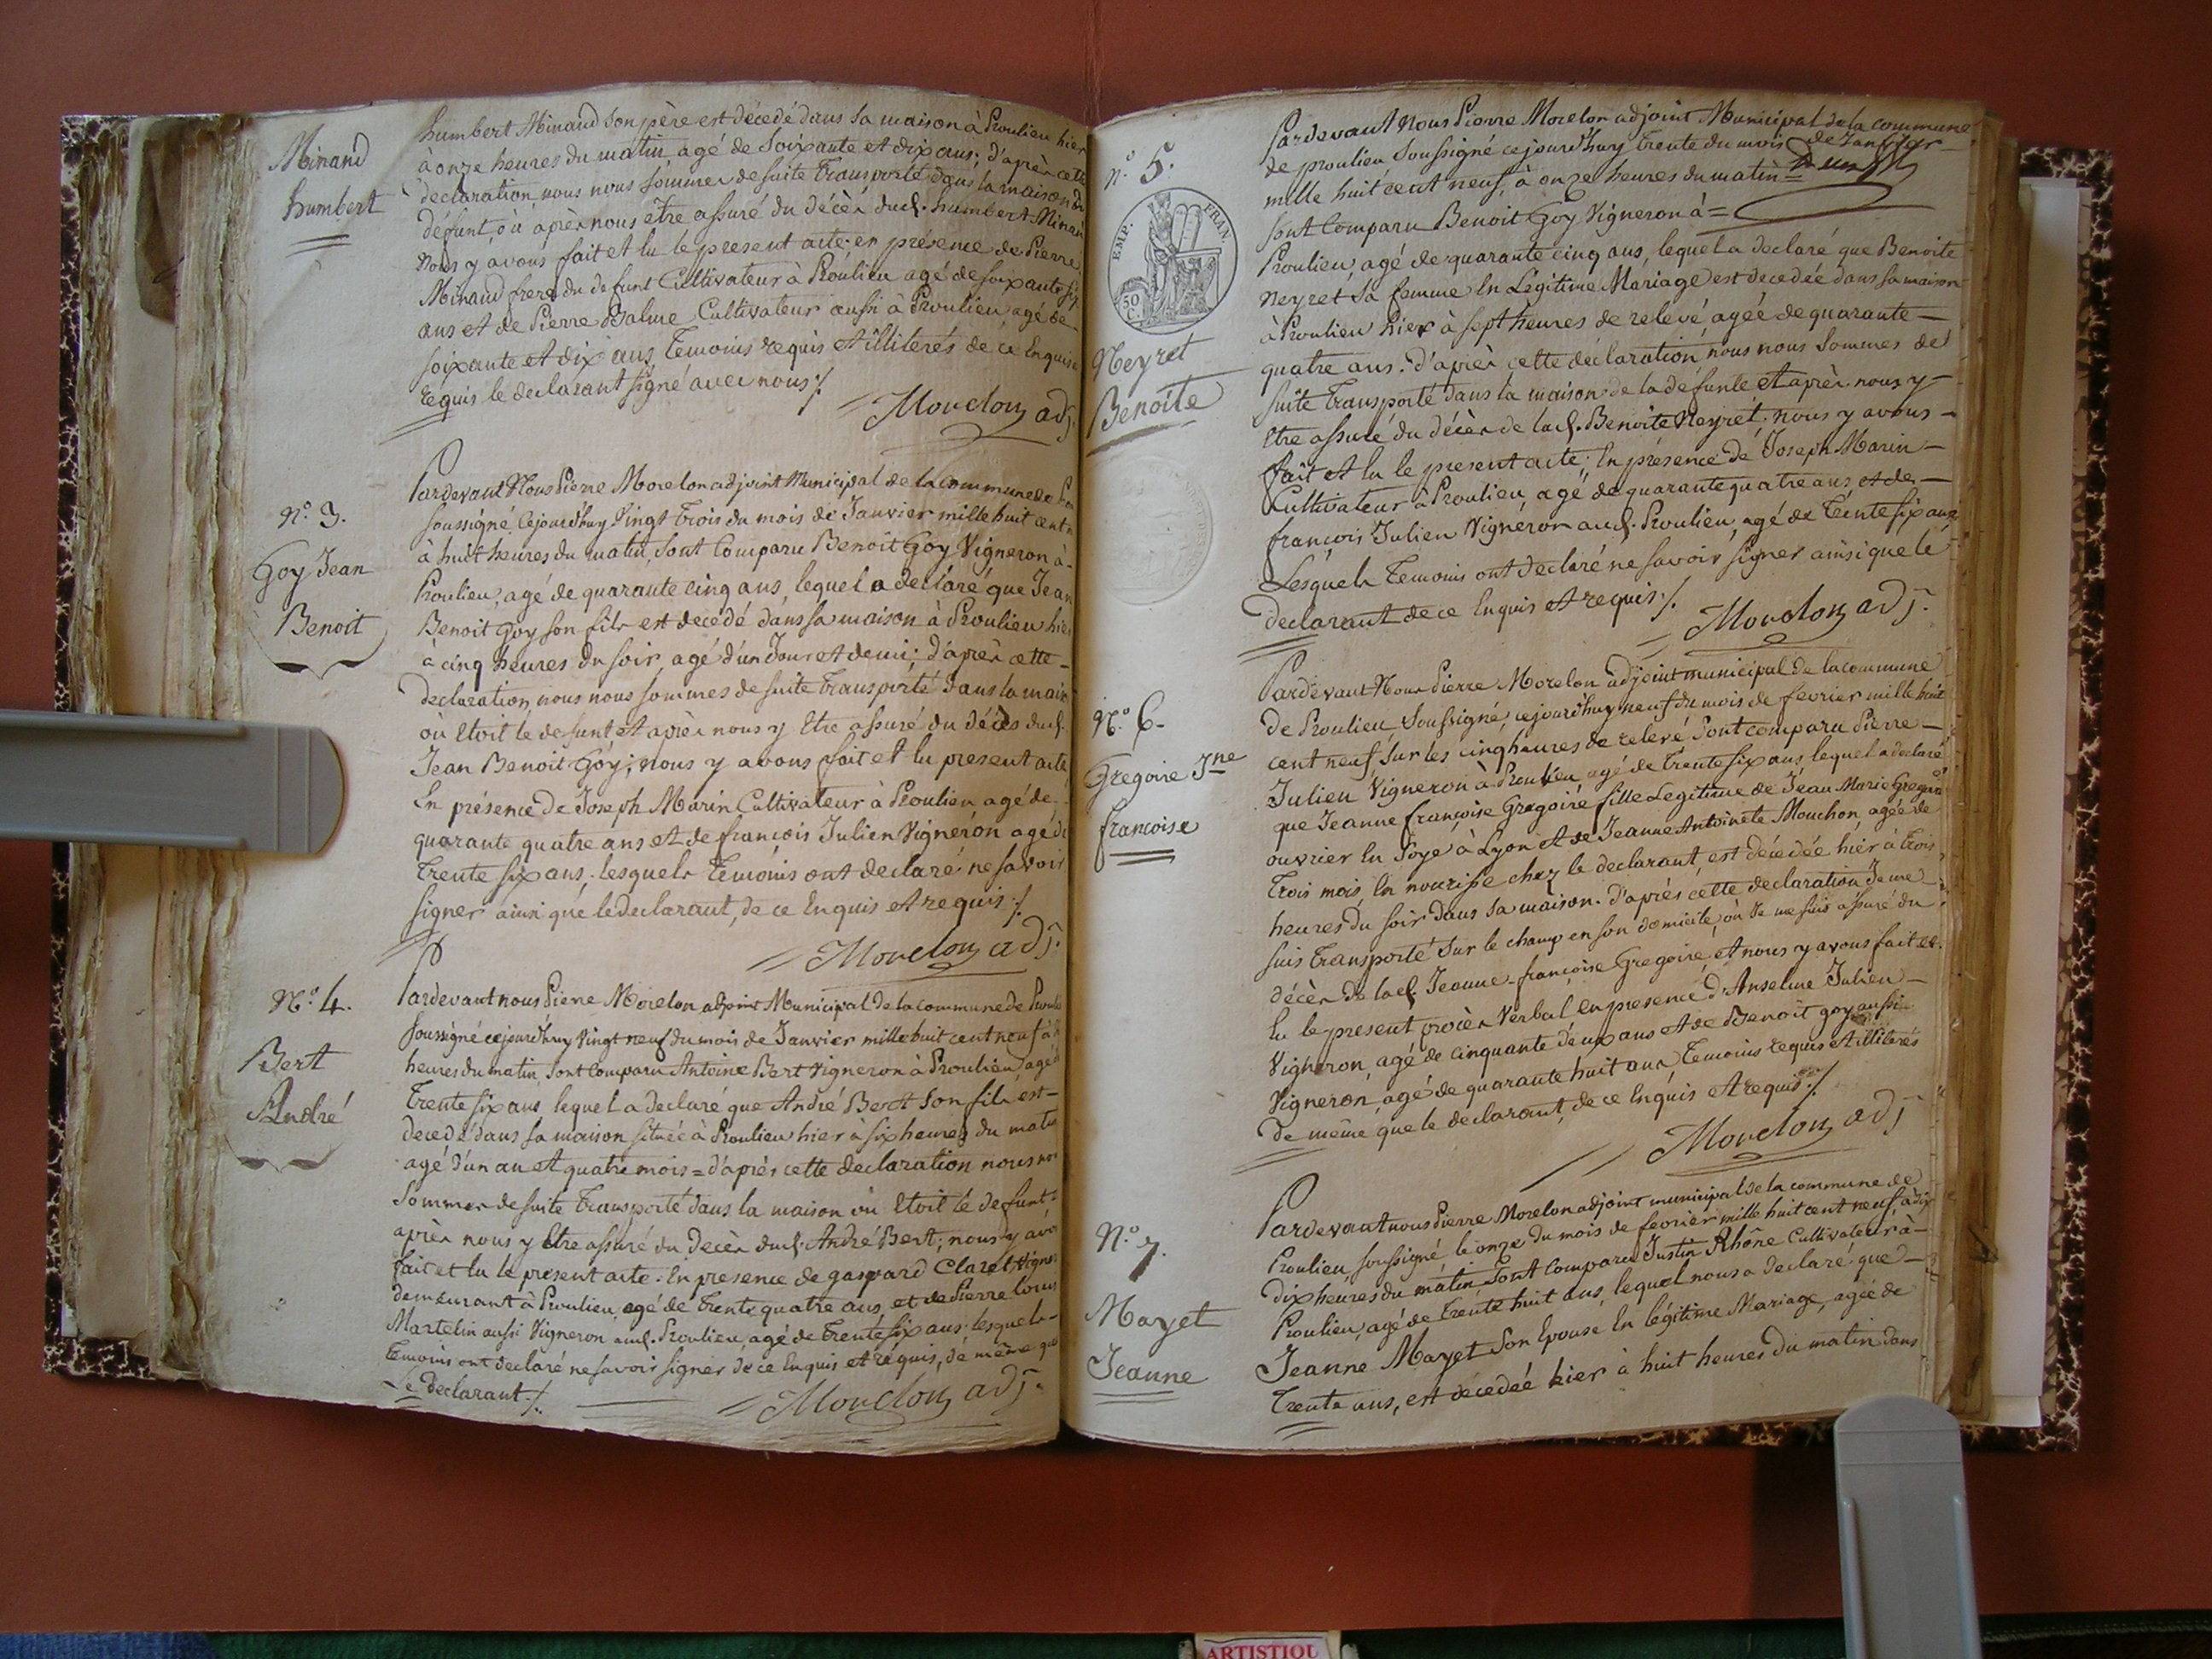 Minand
humbert
humbert Minand son père est décedé dans sa maison à Proulieu hier
à onze heures du matin, agé de Soixante et dix ans; d'après cette
declaration, nous nous sommes de suite transporté dans la maison du
défunt, où après nous être assuré du décès dud. humbert Minand
Nous y avons fait et lu le present acte en présence de Pierre
Minand frere du defunt Cultivateur à Proulieu agé de soixante six
ans et de Pierre Balme Cultivateur aussi à Proulieu agé de
soixante et dix ans, temoins requis et illiterés de ce Enquis et
requis le declarant signé avec nous ./.
Morelon adj.
N.o 3.
Goy Jean
Benoit
Pardevant Nous Pierre Morelon adjoint Municipal de la commune de
soussigné Cejourd'huy Vingt trois du mois de Janvier mille huit cent
à huit heures du matin, sont Comparu Benoit Goy Vigneron à
Proulieu, agé de quarante cinq ans, lequel a declaré que Jean
Benoit Goy son fils est decedé dans sa maison à Proulieu hier
à cinq heures du soir, agé d'un Jour et demi; d'après cette
declaration, nous nous sommes de suite transporté dans la maison
où Etoit le defunt et après nous y Etre assuré du décès dud.
Jean Benoit Goy; nous y avons fait et lu present acte
En présence de Joseph Marin Cultivateur à Proulieu agé de
quarante quatre ans et de françois Julien Vigneron agé de
trente six ans, lesquels temoins ont declaré ne savoir
signer ainsi que le declarant, de ce Enquis et requis ./.
Morelon adj.
N.o 4.
Bert
André
Pardevant nous Pierre Morelon adjoint Municipal de la commune de
soussigné cejourd'huy Vingt neuf du mois de Janvier mille huit cent neuf à
heures du matin, sont Comparu Antoine Bert Vigneron à Proulieu, agé de
trente six ans, lequel a declaré que André Bert son fils, est
decedé dans sa maison située à Proulieu hier à six heures du matin
agé d'un an et quatre mois = d'après cette declaration nous nous
Sommes de suite transporté dans la maison où Etoit le defunt
après nous y Etre assuré du Decès dud. André Bert; nous y avons
fait et lu le present acte. En presence de gaspard Claret, Vigneron
demeurant à Proulieu, agé de trente quatre ans, et de Pierre
Martelin aussi Vigneron aud. Proulieu, agé de trente six ans; lesquels
temoins ont declaré ne savoir signer de ce Enquis et requis, de même que
le declarant ./.
Morelon adj.
N.o 5.
EMP. FRAN.
50 C.
Neyret
Benoite
Pardevant Nous Pierre Morelon adjoint Municipal de la commune
de proulieu soussigné cejourd'huy trente du mois de Janvier
mille huit cent neuf, à onze heures du matin =
sont Comparu Benoit Goy Vigneron à =
Proulieu, agé de quarante cinq ans, lequel a declaré que Benoite
Neyret sa femme En Légitime Mariage est decedée dans sa maison
à Proulieu hier à sept heures de relevé, agéé de quarante
quatre ans. d'après cette déclaration, nous nous Sommes de
suite transporté dans la maison de la défunte et après nous y
Etre assuré du décès de lad. Benoite Neyret, nous y avons
fait et lu le present acte; En présence de Joseph Marin
Cultivateur à Proulieu, agé de quarante quatre ans et de
françois Julien Vigneron aud. Proulieu, agé de trente six ans,
Lesquels temoins ont declaré ne savoir signer ainsi que le
declarant de ce Enquis et requis ./.
Morelon adj.
N.o 6
Gregoire Jne
françoise
Pardevant Nous Pierre Morelon adjoint municipal de la commune
de Proulieu, soussigné, cejourd'huy neuf du mois de fevrier mille huit
cent neuf, sur les cinq heures de relevé Sont comparu Pierre
Julien Vigneron à Proulieu agé de trente six ans, lequel a declaré
que Jeanne françoise Gregoire fille Legitime de Jean Marie Gregoire
ouvrier En Soye à Lyon et de Jeanne Antoinete Mouchon, agée de
trois mois, En nourisse chez le declarant, est décedée hier à trois
heures du soir dans sa maison. d'après cette declaration Je me
suis transporté sur le champ en son domicile, où Je me suis assuré du
décès de lad. Jeanne-françoise Gregoire, et nous y avons fait et
lu le present procès Verbal en presence d'Anselme Julien
Vigneron, agé de cinquante deux ans et de Benoit goy aussi
Vigneron, agé de quarante huit ans temoins requis et illiterés
de même que le declarant, de ce Enquis et requis ./.
Morelon adj
N.o 7.
Mayet
Jeanne
Pardevant nous Pierre Morelon adjoint municipal de la commune de
Proulieu soussigné le onze du mois de fevrier mille huit cent neuf, à dix
dix heures du matin Sont comparu Justin Rhône Cultivateur à
Proulieu, agé de trente huit ans, lequel nous a declaré que
Jeanne Mayet Son Epouse En légitime Mariage, agée de
trente ans, est décedéé hier à huit heures du matin dans
ARTISTIQU